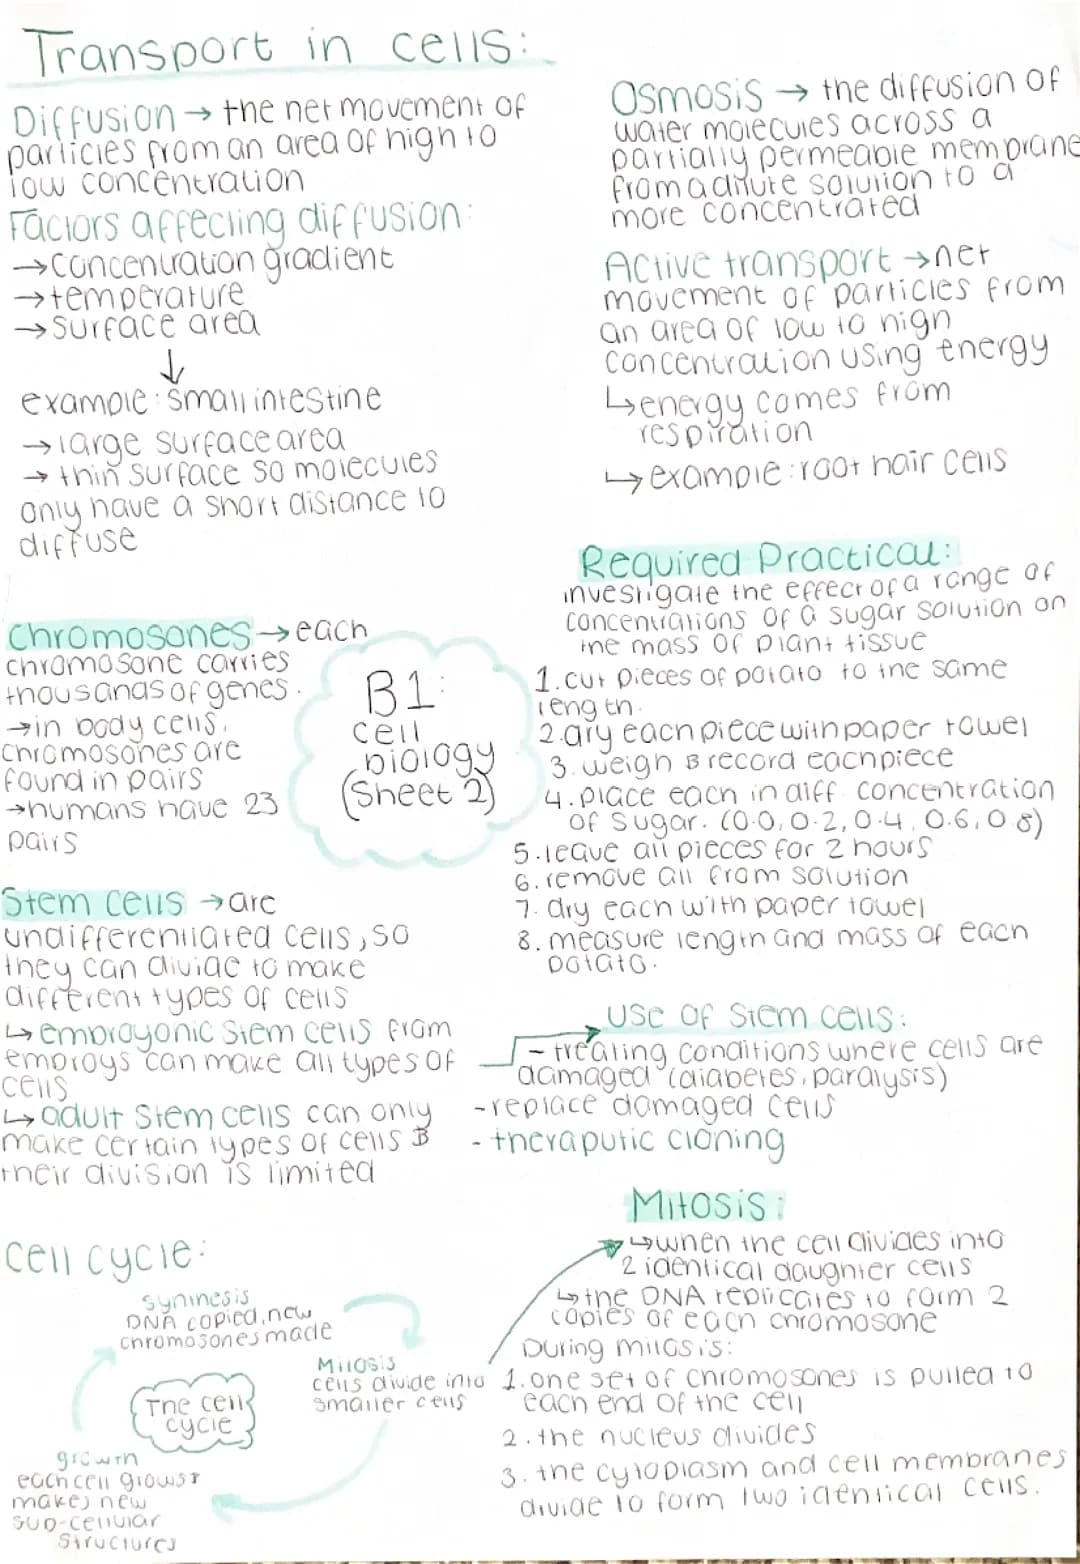 Transport in cells:
Diffusion → the net movement of
particles from an area of high to
low concentration
Factors affecting diffusion:
→ concentration gradient
→ temperature
→ surface area
↓
example: small intestine
→ large surface area
→ thin surface so molecules
only have a short distance to
diffuse
Osmosis → the diffusion of
water molecules across a
partially permeable membrane
from a dilute solution to a
more concentrated
Active transport → net
movement of particles from
an area of low to high
concentration using energy
↳ energy comes from
respiration
↳ example: root hair cells
Required Practical:
investigate the effect of a range of
concentrations of a sugar solution on
the mass of plant tissue
1. cut pieces of potato to the same
length.
2. dry each piece with paper towel
3. weigh & record each piece
4. place each in diff concentration
of sugar. (0.0, 0.2, 0.4, 0.6, 0.8)
5. leave all pieces for 2 hours
6. remove all from solution
7. dry each with paper towel
8. measure length and mass of each
potato.
Chromosones → each
chromosone carries
thousands of genes.
→ in body cells,
chromosones are
found in pairs
→ humans have 23
pairs
B1:
cell
biology
(Sheet 2)
Stem cells → are
undifferentiated cells, so
they can divide to make
different types of cells
↳ embroyonic stem cells from
embroys can make all types of
cells
↳ adult stem cells can only
make certain types of cells &
their division is limited
Use of stem cells:
- treating conditions where cells are
damaged (diabetes, paralysis)
- replace damaged cells
- theraputic cloning
Mitosis:
↳ when the cell divides into
2 identical daughter cells
↳ the DNA replicates to form 2
copies of each chromosone
During mitosis:
1. one set of chromosones is pulled to
each end of the cell
2. the nucleus divides
3. the cytoplasm and cell membranes
divide to form two identical cells.
cell cycle:
synthesis
DNA copied, new
chromosones made
Mitosis
cells divide into
smaller cells
The cell
cycle
growth
each cell grows &
makes new
sub-cellular
structures